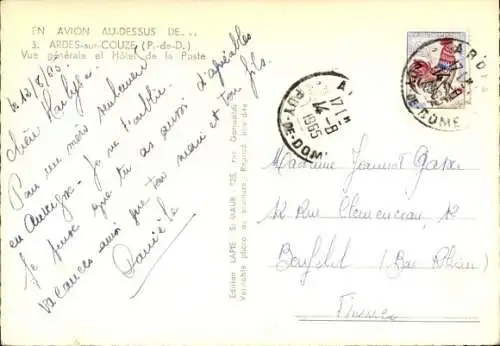 EN AVION AU-DESSUS DE...
3. ARDES-sur-COUZE (P.-de-D.)
Vue générale et Hôtel de la Poste
le 12/8/65
Chère
Pour un mois seulement
en Auvergne. Je ne t'oublie
Je pense que tu as aussi
d'agréables
vacances ainsi que ton mari et ton fils.
Danièle
Edition LAPIE, St-MAUR
Véritable photo au bromure - Reprod. interdite
17 H
14-8
1965
PUY-DE-DOME
PUY-DE-DOME
Madame
12 Rue Clemenceau, 12
Benfeld (Bas Rhin)
France